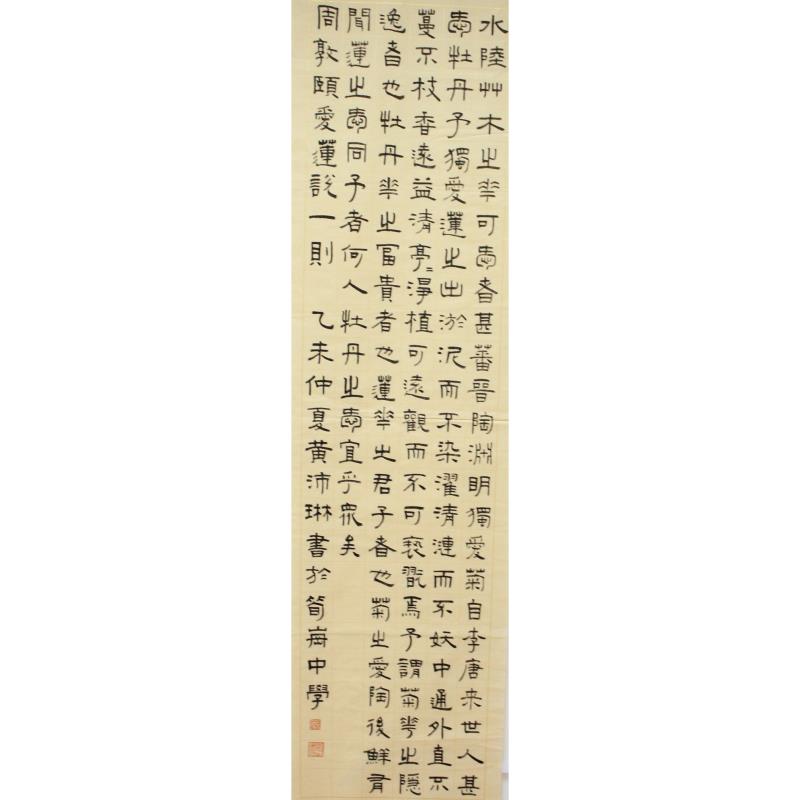 水陸艸木之華可㤅者甚蕃晉陶淵明獨愛菊自李唐来世人甚
㤅牡丹予獨愛蓮之出淤泥而不染濯清漣而不妖中通外直不
蔓不枝香遠益清亭〻淨植可遠觀而不可褻翫焉予謂菊華之隱
逸者也牡丹華之富貴者也蓮華之君子者也菊之愛陶後鮮有
聞蓮之㤅同予者何人牡丹之㤅宜乎眾矣
周敦頤愛蓮説一則 乙未仲夏黃沛琳書於筍中學